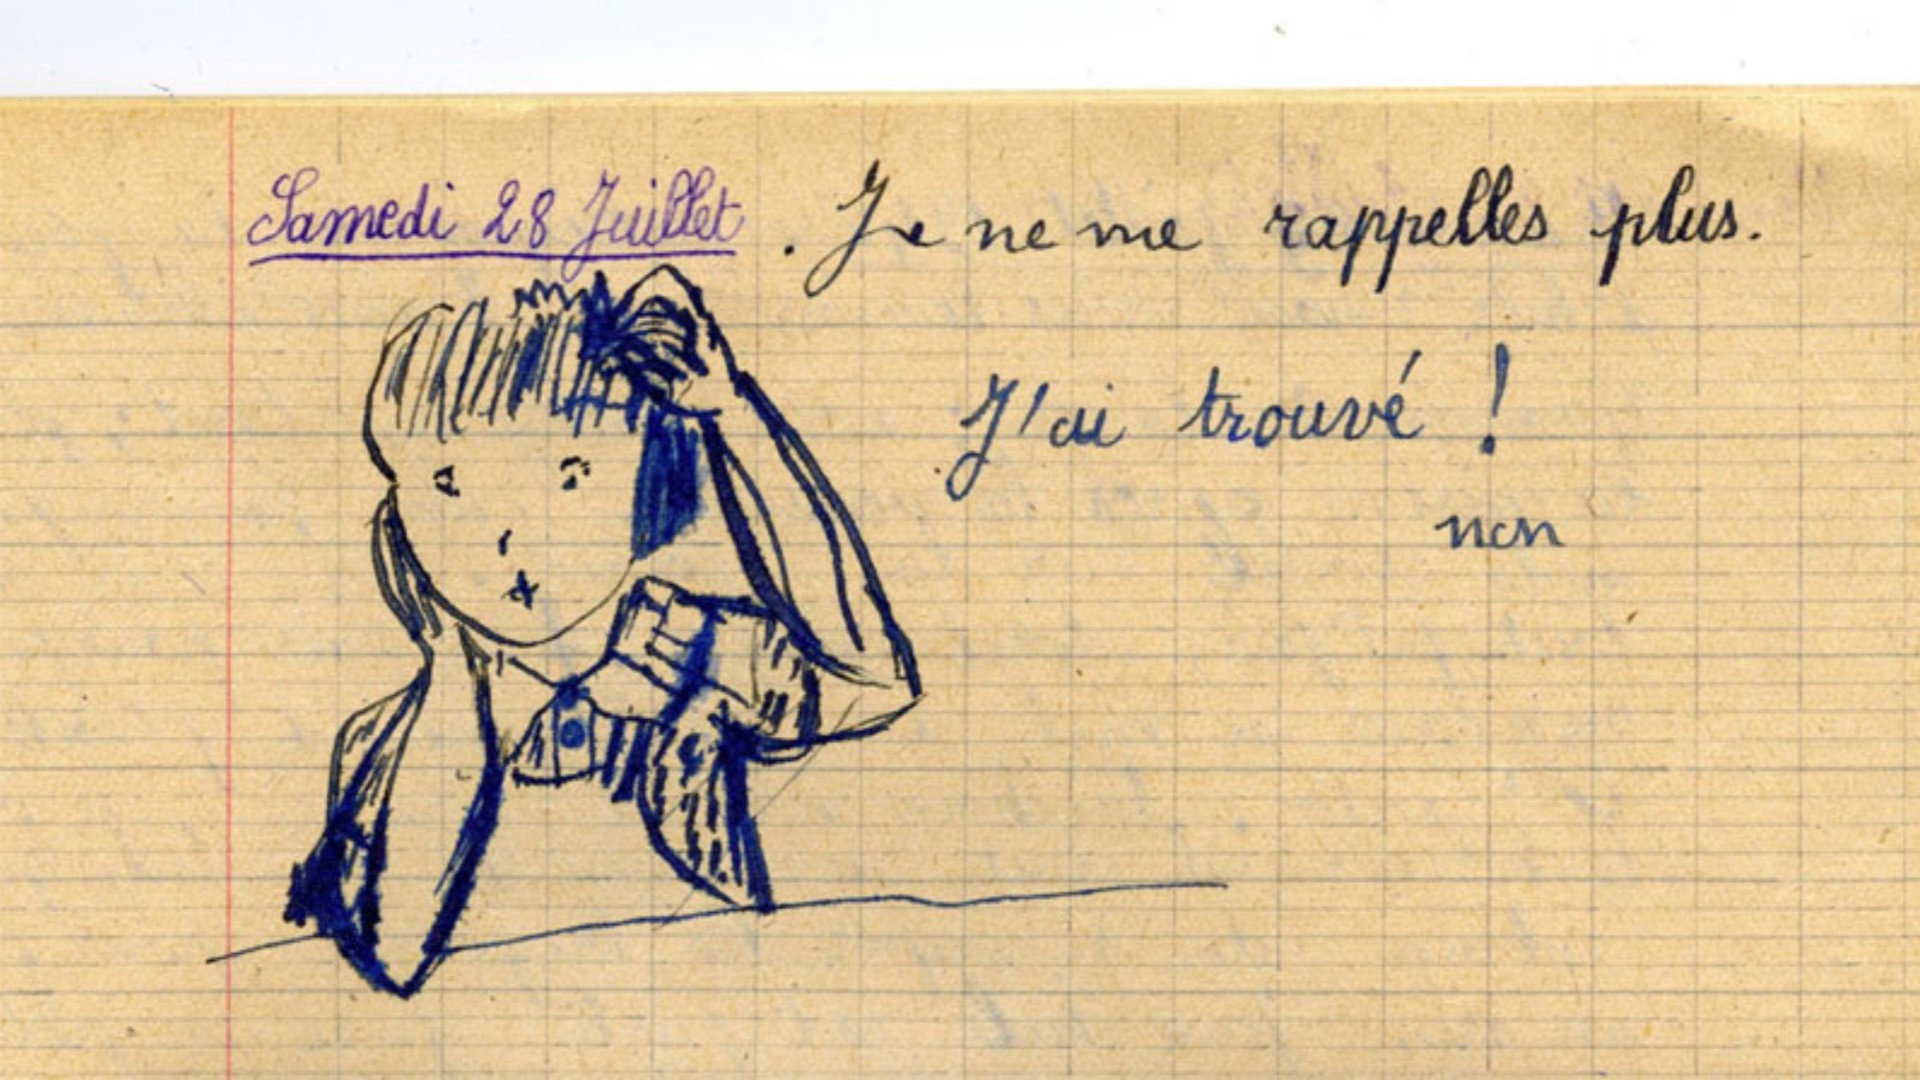 Samedi 28 Juillet. Je ne me rappelles plus.
J'ai trouvé !
non